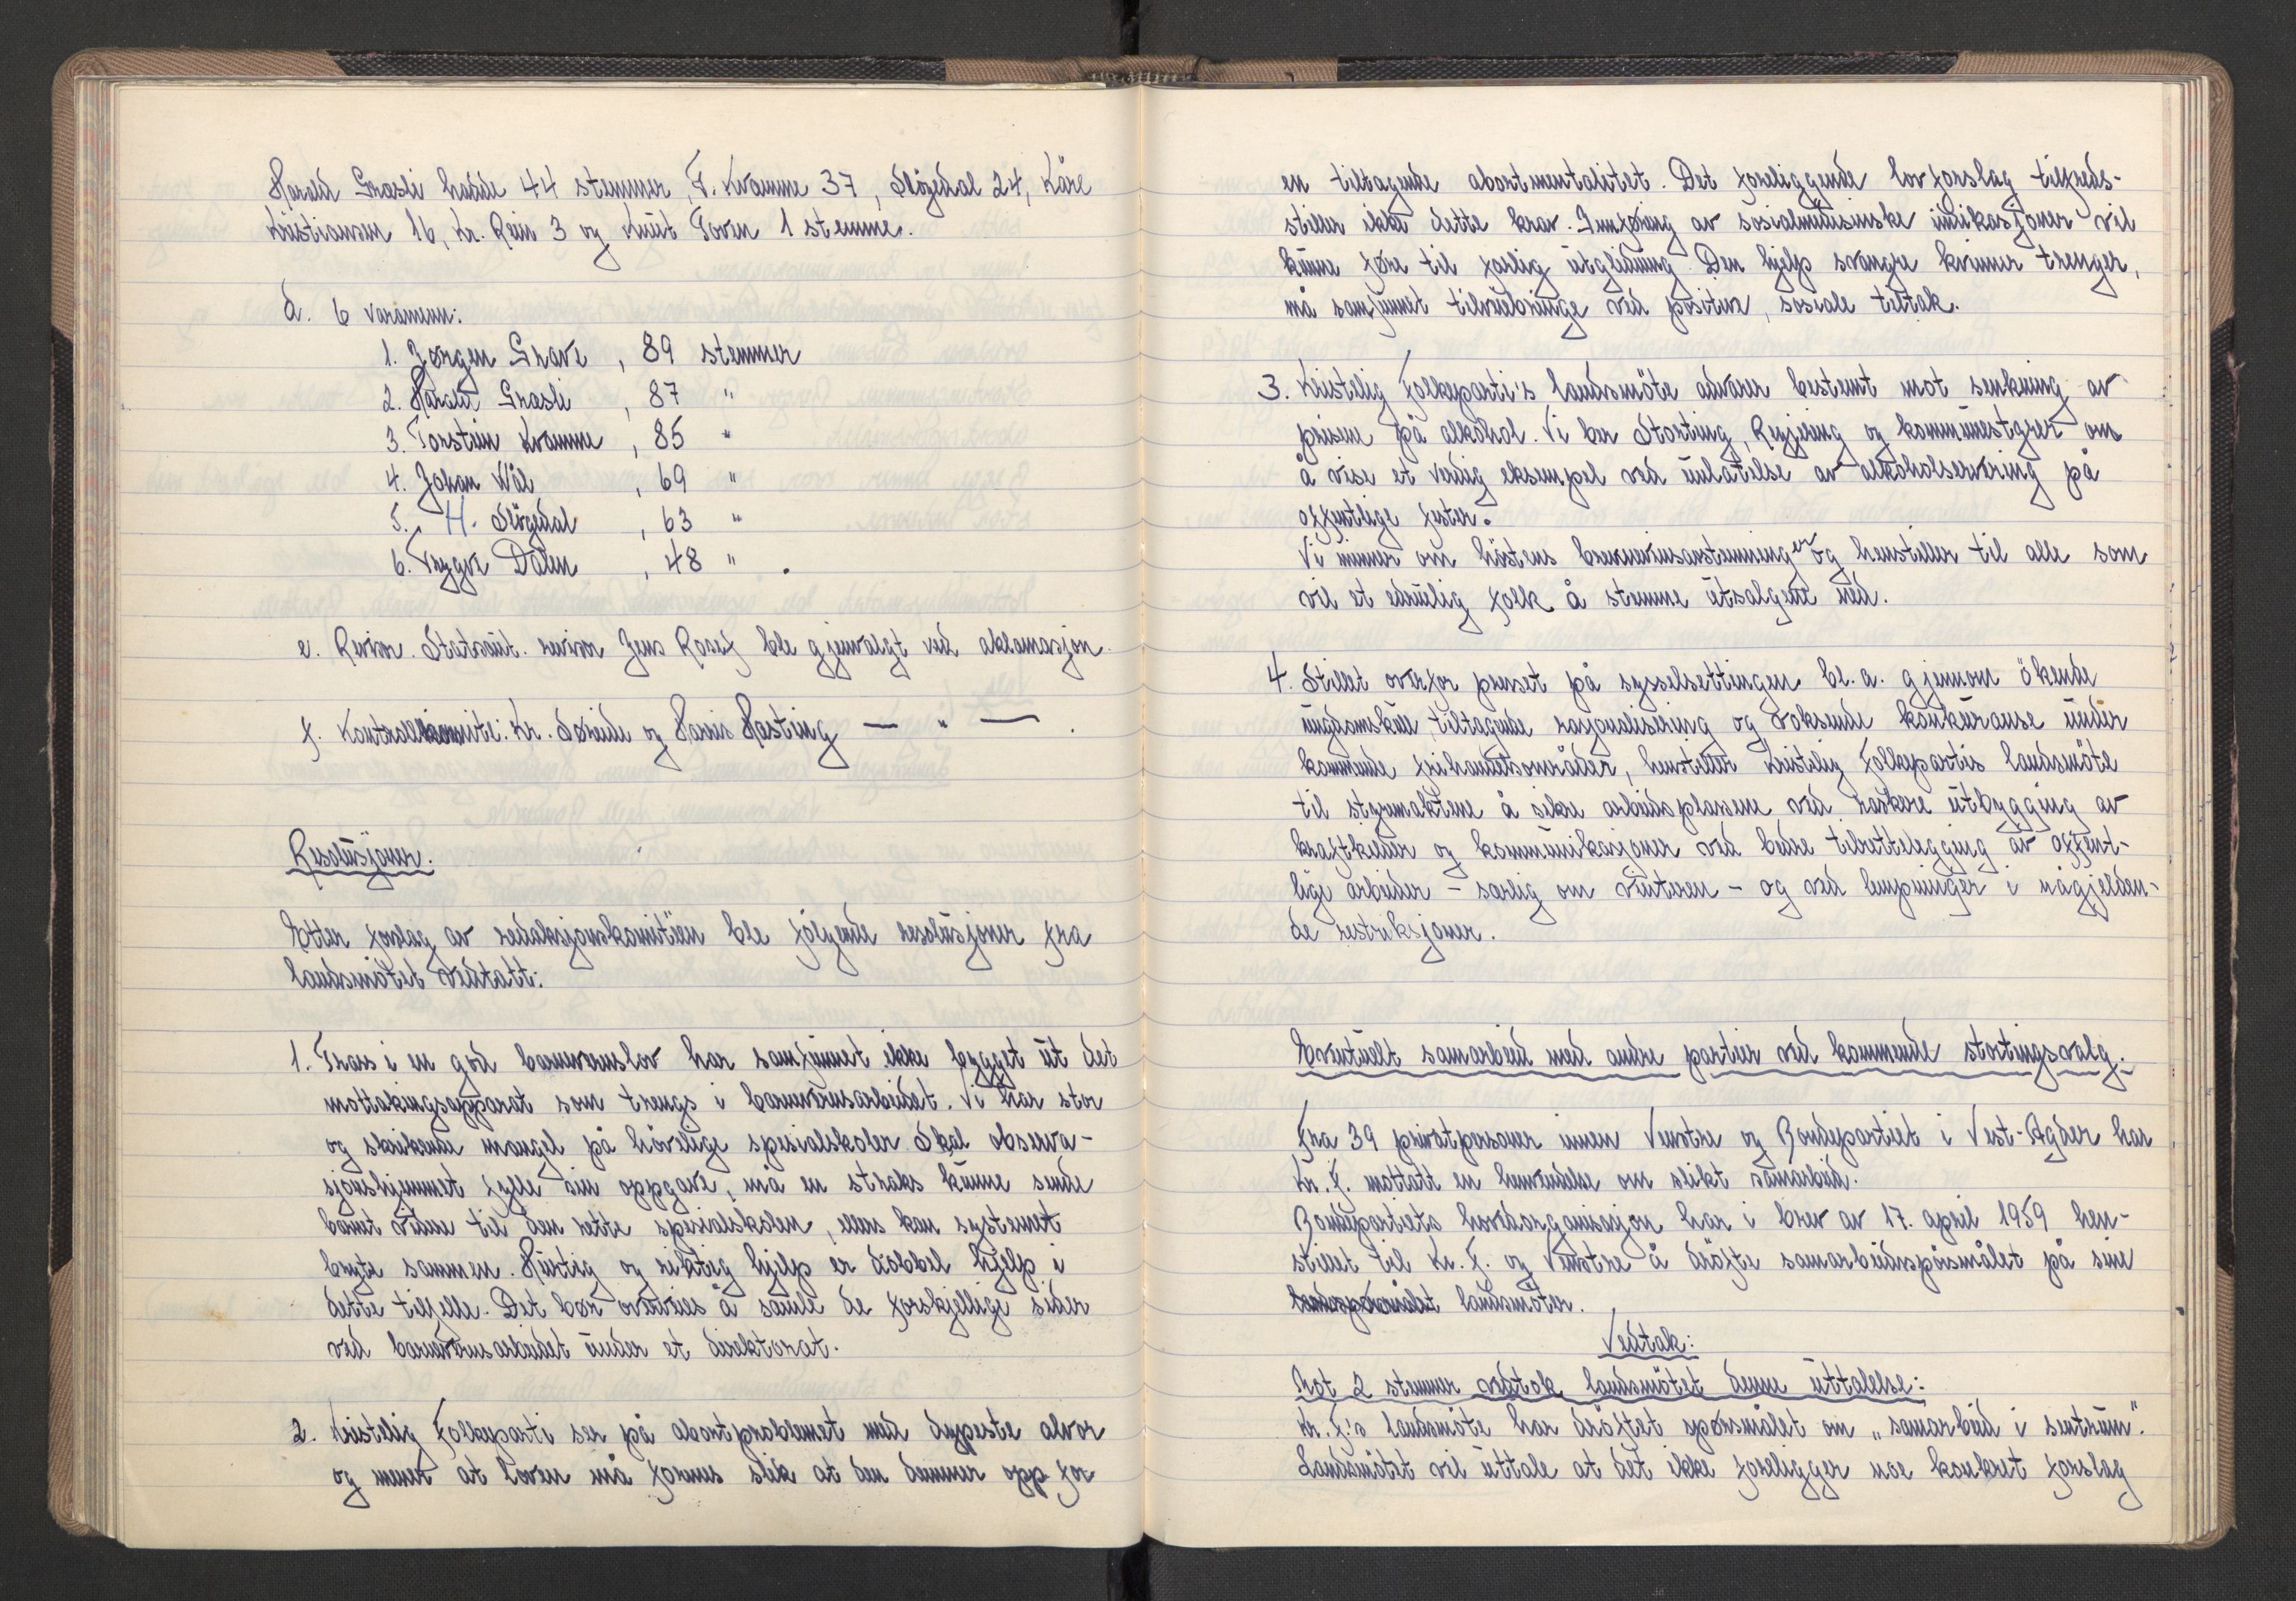 Harald Grasli hadde 44 stemmer, T. Kvamme 37, Slögedal 24, Kåre
Kristiansen 16, Kr. Rein 3 og Knut Toven 1 stemme.
d. 6 varamenn:
1. Jørgen Grave, 89 stemmer
2. Harald Grasli, 87 "
3. Torstein Kvamme, 85 "
4. Johan Wål, 69 "
5. H. Slögedal, 63 "
6. Trygve Dalen, 48 " .
e. Revisor. Statsaut. revisor Jens Rosef ble gjenvalgt ved aklamasjon.
f. Kontrollkomite: Kr. Søreide og Hans Høsting — " — .
Resolusjoner.
Etter forslag av redaksjonskomitéen ble fölgende resolusjoner fra
landsmötet vedtatt:
1. Trass i en god barnevernslov har samfunnet ikke bygget ut det
mottakingsapparat som trengs i barnevernsarbeidet. Vi har stor
og skrikende mangel på hövelige spesialskoler. Skal observa-
sjonshjemmet fylle sin oppgave, må en straks kunne sende
barnet videre til den rette spesialskolen, ellers kan systemet
bryte sammen. Hurtig og riktig hjelp er dobbel hjelp i
dette tilfelle. Det bør overveies å samle de forskjellige sider
ved barnevernsarbeidet under et direktorat.
2. Kristelig Folkeparti ser på abortproblemet med dypeste alvor
og mener at loven må formes slik at den demmer opp for
en tiltagende abortmentalitet. Det foreliggende lovforslag tilfreds-
stiller ikke dette krav. Innføring av sosialmedisinske indikasjoner vil
kunne føre til farlig utglidning. Den hjelp svangre kvinner trenger,
må samfunnet tilveiebringe ved positive, sosiale tiltak.
3. Kristelig Folkeparti's landsmöte advarer bestemt mot senkning av
prisene på alkohol. Vi ber Storting, Regjering og kommunestyrer om
å vise et verdig eksempel ved unnlatelse av alkoholservering på
offentlige fester.
Vi minner om höstens brennevinsavstemninger og henstiller til alle som
vil et edruelig folk å stemme utsalgene ned.
4. Stillet overfor presset på sysselsettingen bl.a. gjennom ökende
ungdomskull, tiltagende rasjonalisering og voksende konkuranse under
kommende frihandelsområder, henstiller Kristelig Folkepartis landsmöte
til styremaktene å sikre arbeidsplassene ved raskere utbygging av
kraftkilder og kommunikasjoner ved bedre tilrettelegging av offent-
lige arbeider - særlig om vinteren - og ved lempninger i någjelden-
de restriksjoner.
Eventuelt samarbeid med andre partier ved kommende stortingsvalg.
Fra 39 privatpersoner innen Venstre og Bondepartiet i Vest-Agder har
Kr. F. mottatt en henvendelse om slikt samarbeid.
Bondepartiets hovedorganisasjon har i brev av 17. april 1959 hen-
stillet til Kr. F. og Venstre å dröfte samarbeidsspörsmålet på sine
landsmöter.
Vedtak:
Mot 2 stemmer vedtok landsmötet denne uttalelse:
Kr. F.'s landsmöte har dröftet spørsmålet om „samarbeid i sentrum".
Landsmötet vil uttale at det ikke foreligger noe konkret forslag